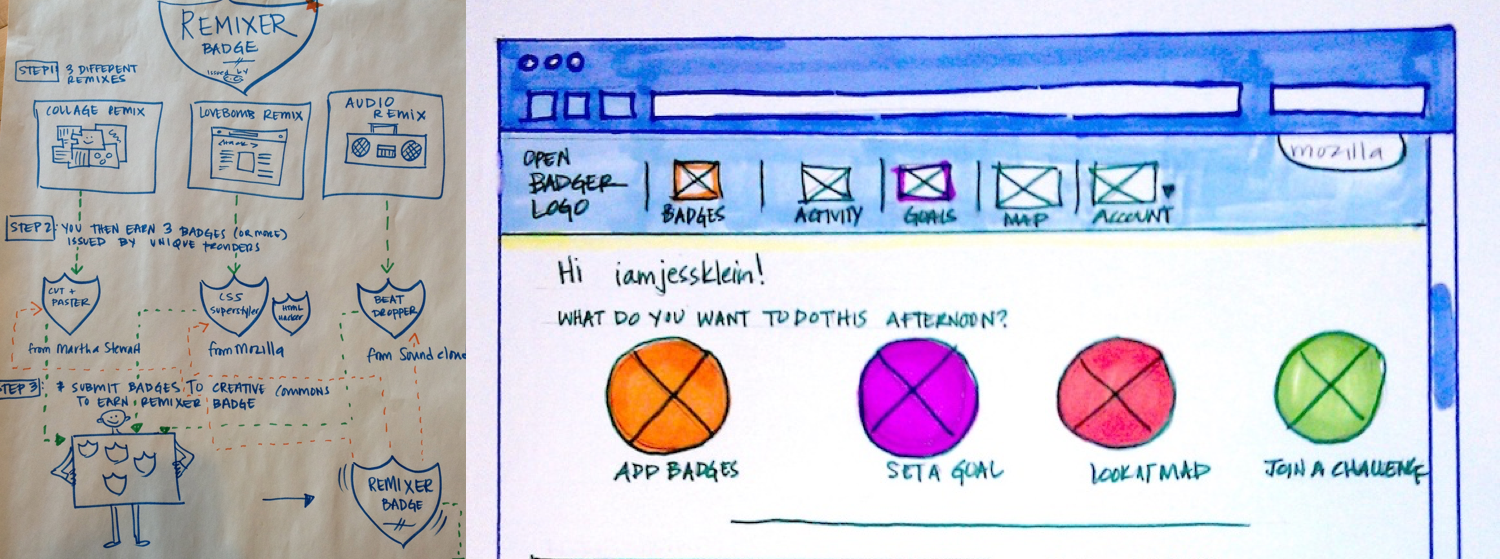 REMIXER
BADGE
issued by
CC
STEP 1 3 DIFFERENT
REMIXES
COLLAGE REMIX
LOVEBOMB REMIX
AUDIO
REMIX
STEP 2: YOU THEN EARN 3 BADGES (OR MORE)
ISSUED BY UNIQUE PROVIDERS
CUT +
PASTER
CSS
Superstyler
HTML
Hacker
BEAT
DROPPER
from Martha Stewart
from Mozilla
from Sound clou
STEP 3: * SUBMIT BADGES TO CREATIVE COMMONS
TO EARN REMIXER BADGE
REMIXER
BADGE
mozilla
OPEN
BADGER
LOGO
BADGES
ACTIVITY
GOALS
MAP
ACCOUNT
Hi iamjessklein!
WHAT DO YOU WANT TO DO THIS AFTERNOON?
ADD BADGES
SET A GOAL
LOOK AT MAP
JOIN A CHALLENGE